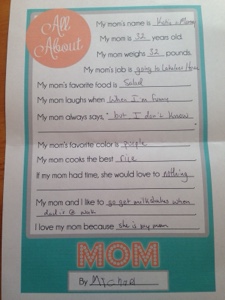 All About
My mom's name is
My mom is 32 years old.
My mom weighs 32 pounds.
My mom's job is going to
My mom's favorite food is Salad
My mom laughs when I'm funny
My mom always says "but I don't know
My mom's favorite color is purple
My mom cooks the best rice
If my mom had time, she would love to nothing
My mom and I like to go get milkshakes when
dad is @ work
I love my mom because she is my mom
MOM
By